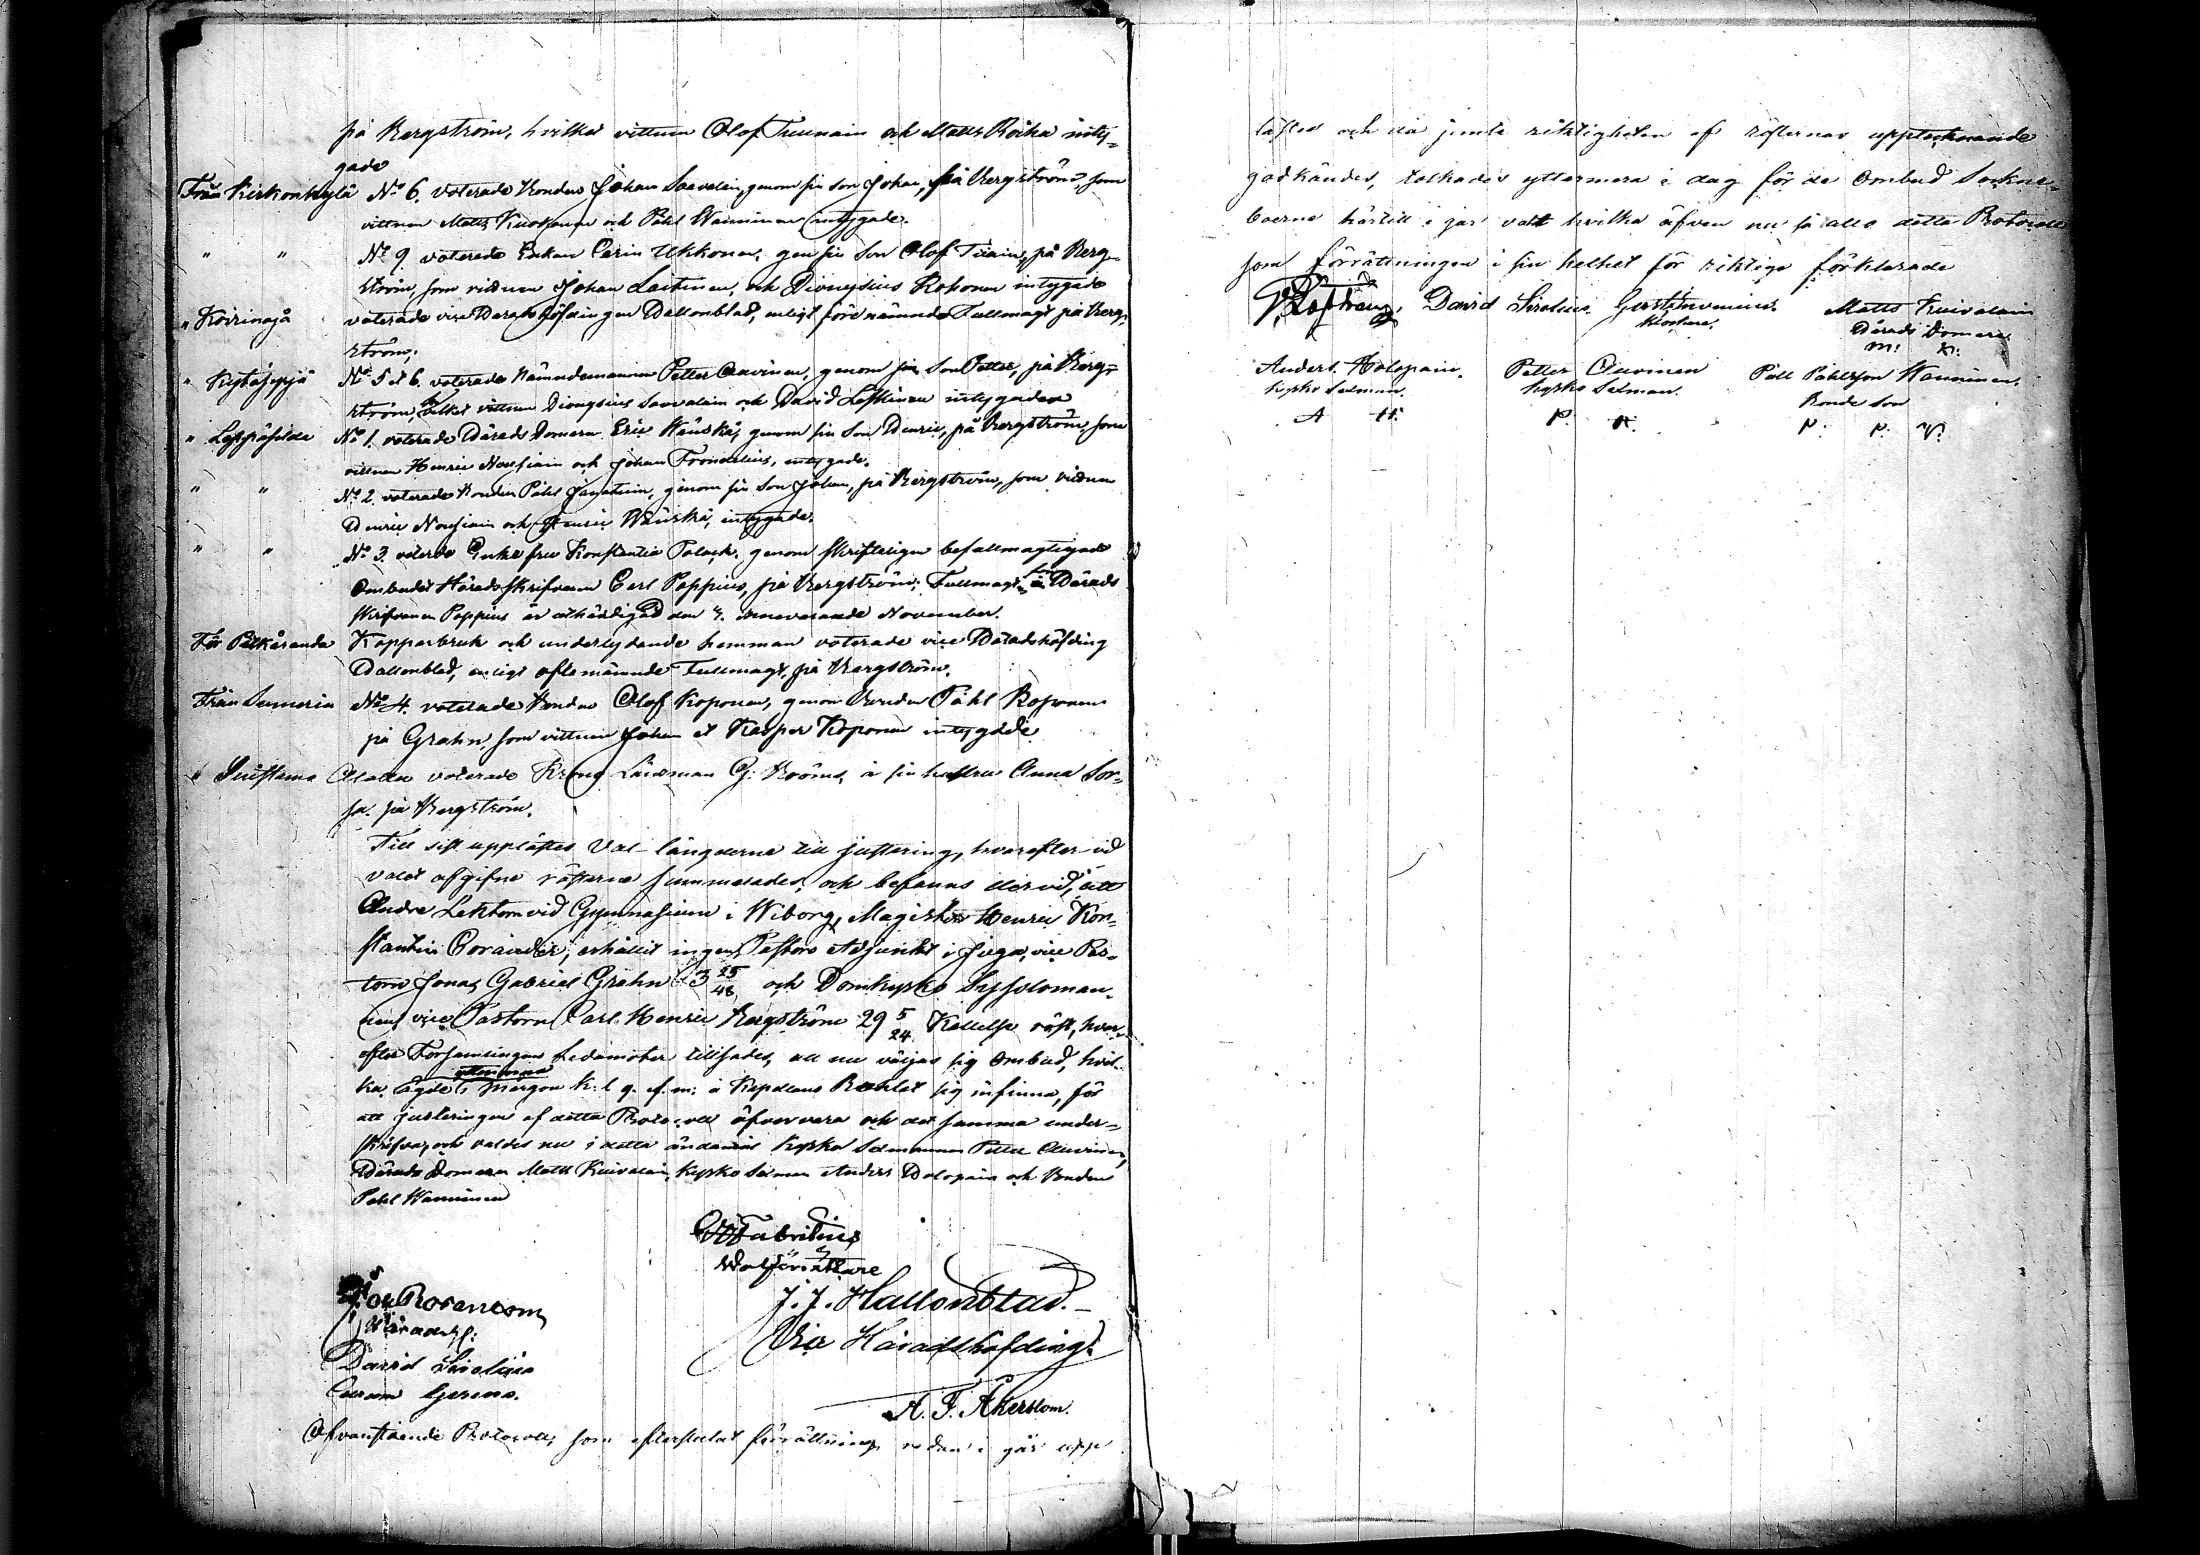 på Bergström, hvilket vittnen Olof Tiunain och Matts Roika inty=
gade
Från Kirkonkylä No 6. voterade Bonden Johan Saavalain, genom sin son Johan, på Bergström, som
vittnen Matts Kuosanen och Påhl Wänninen intygade.
" " No 9. voterade Enkan Carin Ukkonen, gen sin Son Olof Tiiain, på Berg=
ström, som vittnen Johan Laitinen, och Dionysius Rokonen intygade
" Koirinoja voterade vice Häradshöfdingen Hallonblad, enligt förenämnde Fullmagt på Berg=
ström;
" Kytösyjä No 5 et 6. voterade Nämndemannen Petter Auvinen, genom sin Son Petter, på Berg=
ström, hvilket vittnen Dionysius Saavalain och David Löfthinen intygade
" Leppäsilda No 1. voterade Härads Domaren Eric Wänskä, genom sin Son Henric, på Bergström, som
vittnen Henric Nousiain och Johan Fronelius, intygade.
" " No 2. voterade Bonden Påhl Janatuin, genom sin Son Johan, på Bergström, som vittnen
Henric Nousiain och Henric Wänskä, intygade.
" " No 3. voterade Enkefru Konstantia Polack, genom skrifteligen befullmagtigade
Ombudet Häradsskrifvaren Carl Poppius, på Bergström; Fullmagt för Härads
skrifvaren Poppius är uthändigad den 4. innevarande November.
För Pitkäranda Kopparbruk och underlydande hemman voterade vice Häradshöfding
Hallonblad, enligt oftenämnde Fullmagt, på Bergström.
Från Jumeria No 4. voterade Bonden Olof Koponen, genom Bonden Påhl Koponen
på Grahn, som vittnen Johan et Kasper Koponen intygade
" Suistama Alattu voterade Krono Länsman G: Krööns, å sin hustru Anna Sor=
sa. på Bergström.
Till sist upplästes Val-längderne till justering, hvarefter vid
valet afgifne rösterne summerades, och befanns dervid, att
Andre Lektorn vid Gymnasium i Wiborg, Magister Henric Kon=
stantin Borander, erhållit ingen, Pastors Adjunkt i Juga, vice Pas=
torn Jonas Gabriel Grahn 3 25/48 och Domkyrko Syssloman=
nen, vice Pastorn Carl Henric Bergström 29 5/24 Kallelse röst, hvar=
efter Församlingens Ledamöter tillsades, att nu välja sig Ombud, hvil=
ka ägde yttermera i morgon k: l 9. f. m: å Kapellans Bohlet sig infinna, för
att justeringen af detta Protocoll öfvervara och det samma under=
skrifva, och valdes nu i detta ändamål Kyrko Sexmannen Petter Auvinen,
Härads Domaren Matts Kuivalain, Kyrko Sexman Anders Holopain och Bonden
Påhl Wänninen
Fabritius
Walförrättare
Rosenbom
Häradsh:
David Sirelius
J. J. Hallonblad.
Vice Häradshöfding
A. F. Åkerblom.
Ofvanstående Protocoll, som efter slutat förrättning redan i går upp
lästes och då jemte riktigheten af rösternas upptecknande
godkändes, tolkades yttermera i dag för de Ombud Sockne=
boerne härtill i går valt hvilka äfven nu så alla detta Protocoll
som förrättningen i sin helhet för riktiga förklarade
David Sirelius. Matts Kuivalain
Klockare. Härads Domare
M: K:
Anders Holopain. Petter Auvinen Påll Påhlsson Wanninen
Kyrko Sexman. Kyrko Sexman. Bonde Son
A H. P. A. P: P: W: